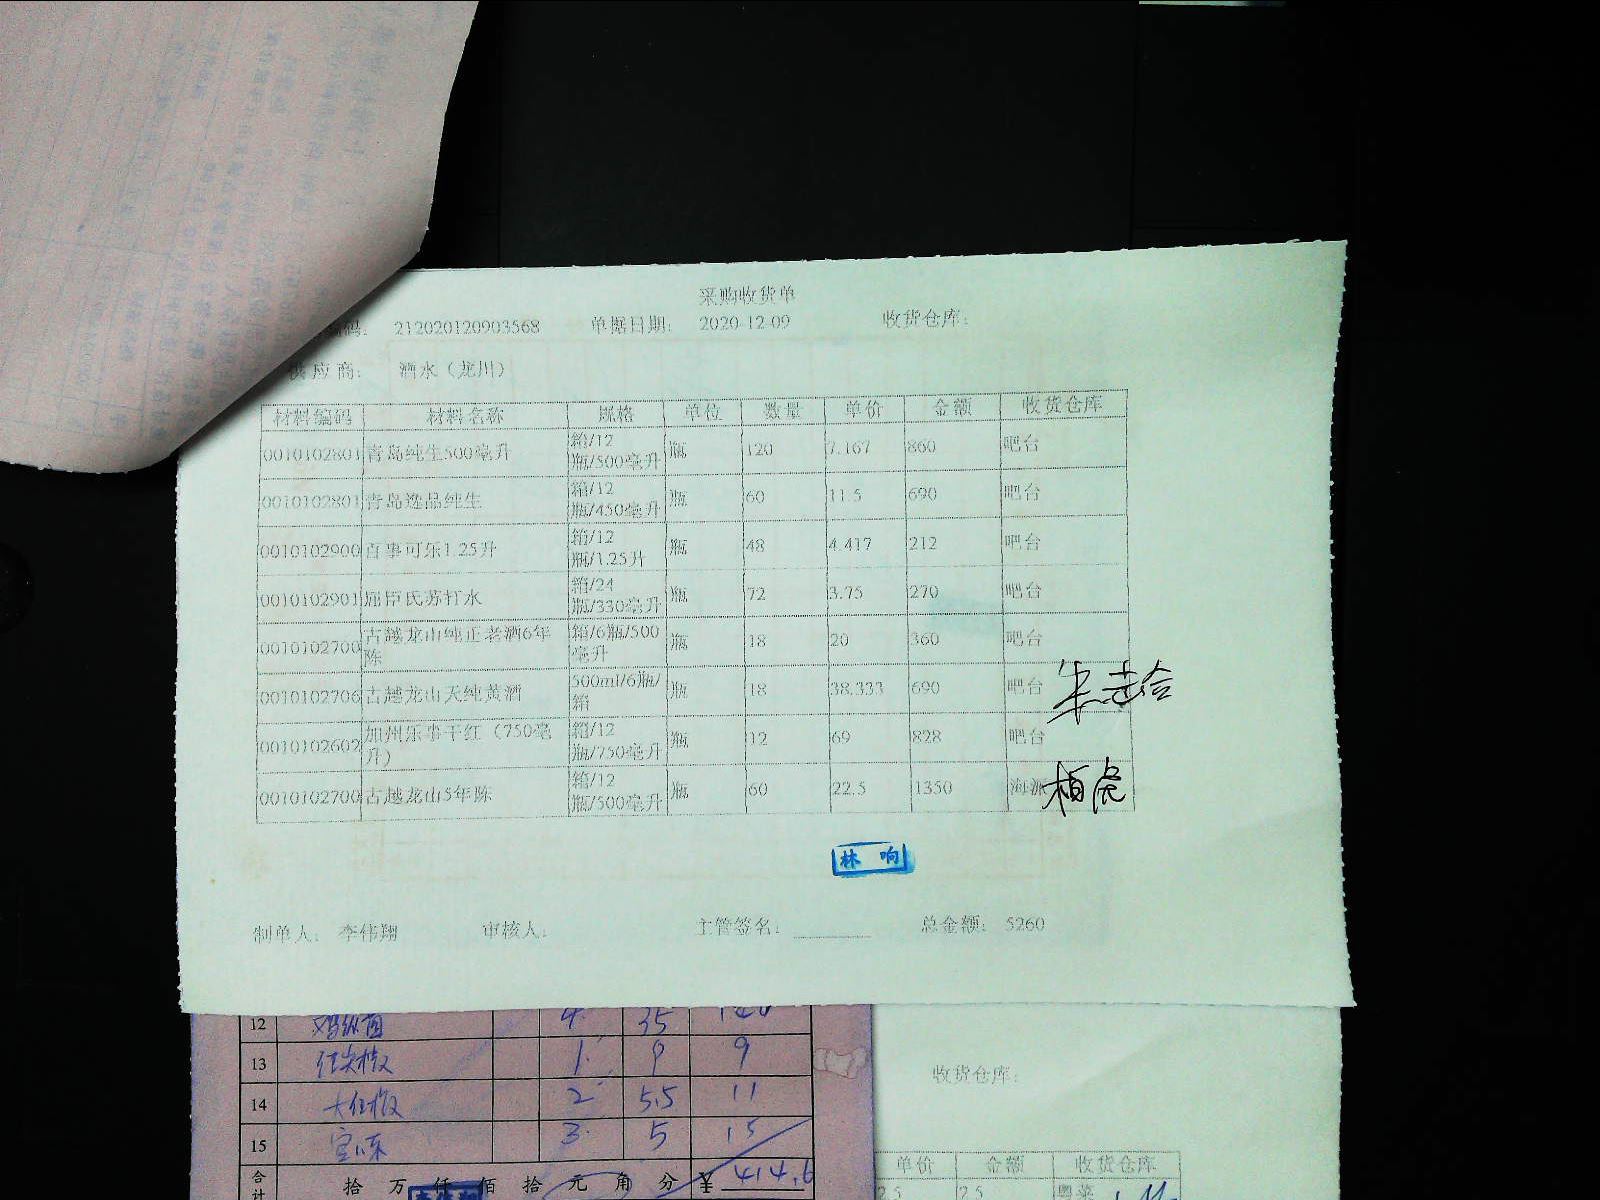 采购收货单
编码: 212020120903568 单据日期: 2020-12-09 收货仓库:
供应商: 酒水（龙川）
材料编码 材料名称 规格 单位 数量 单价 金额 收货仓库
0010102801 青岛纯生500毫升 箱/12瓶/500毫升 瓶 120 7.167 860 吧台
0010102801 青岛逸品纯生 箱/12瓶/450毫升 瓶 60 11.5 690 吧台
0010102900 百事可乐1.25升 箱/12瓶/1.25升 瓶 48 4.417 212 吧台
0010102901 屈臣氏苏打水 箱/24瓶/330毫升 瓶 72 3.75 270 吧台
0010102700 古越龙山纯正老酒6年陈 箱/6瓶/500毫升 瓶 18 20 360 吧台
0010102706 古越龙山天纯黄酒 500ml/6瓶/箱 瓶 18 38.333 690 吧台
0010102602 加州乐事干红（750毫升） 箱/12瓶/750毫升 瓶 12 69 828 吧台
0010102700 古越龙山5年陈 箱/12瓶/500毫升 瓶 60 22.5 1350 海派
林响
制单人: 李伟翔 审核人: 主管签名: 总金额: 5260
12 4 35 140
13 1 9 9
14 2 5.5 11
15 3 5 15
合计 拾 万 仟 佰 拾 元 角 分 ¥ 414.6
收货仓库:
单价 金额 收货仓库
2.5 2.5 粤菜